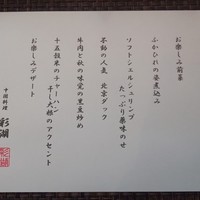 お楽しみ前菜
ふかひれの姿煮込み
ソフトシェルシュリンプ
たっぷり薬味のせ
不動の人気 北京ダック
牛肉と秋の味覚の黒豆炒め
十五穀米のチャーハン
干し大根のアクセント
お楽しみデザート
中国料理
彩湖